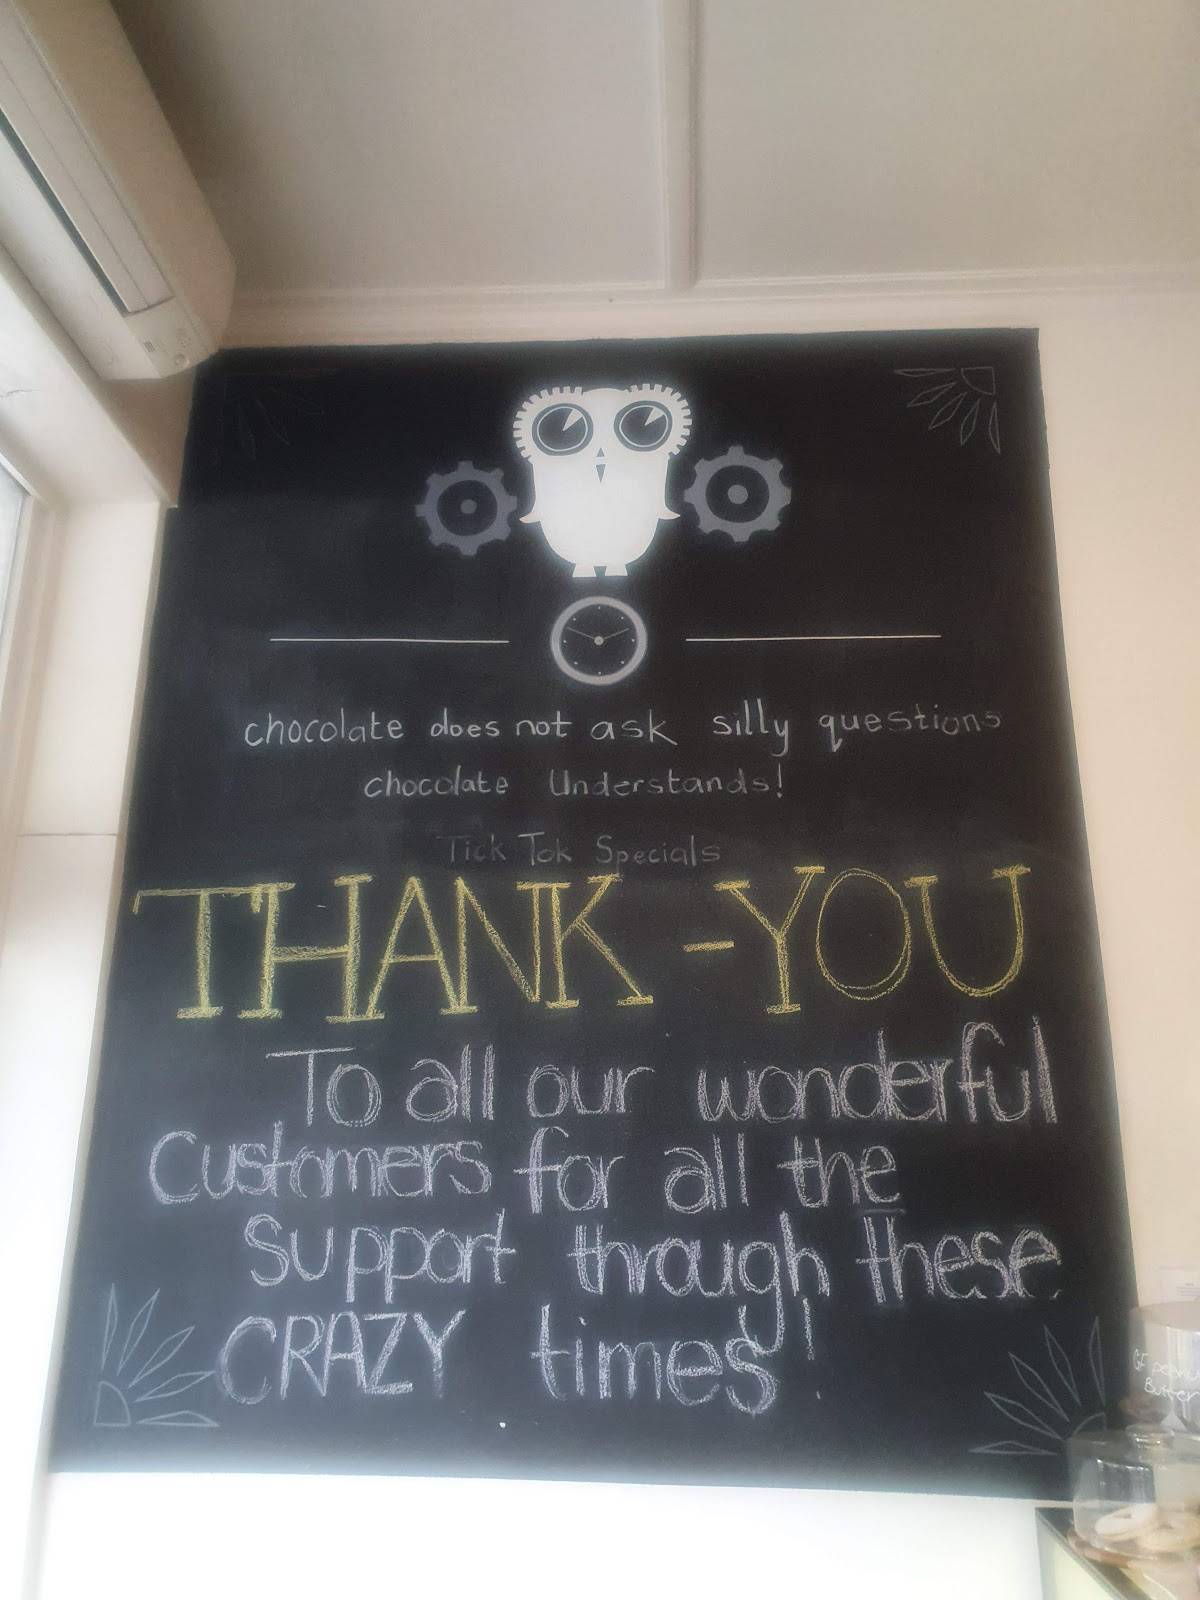 chocolate does not ask silly questions
chocolate Understands!
Tick Tok Specials
THANK-YOU
To all our wonderful
Customers for all the
Support through these
CRAZY times!
GF peanut
Butter